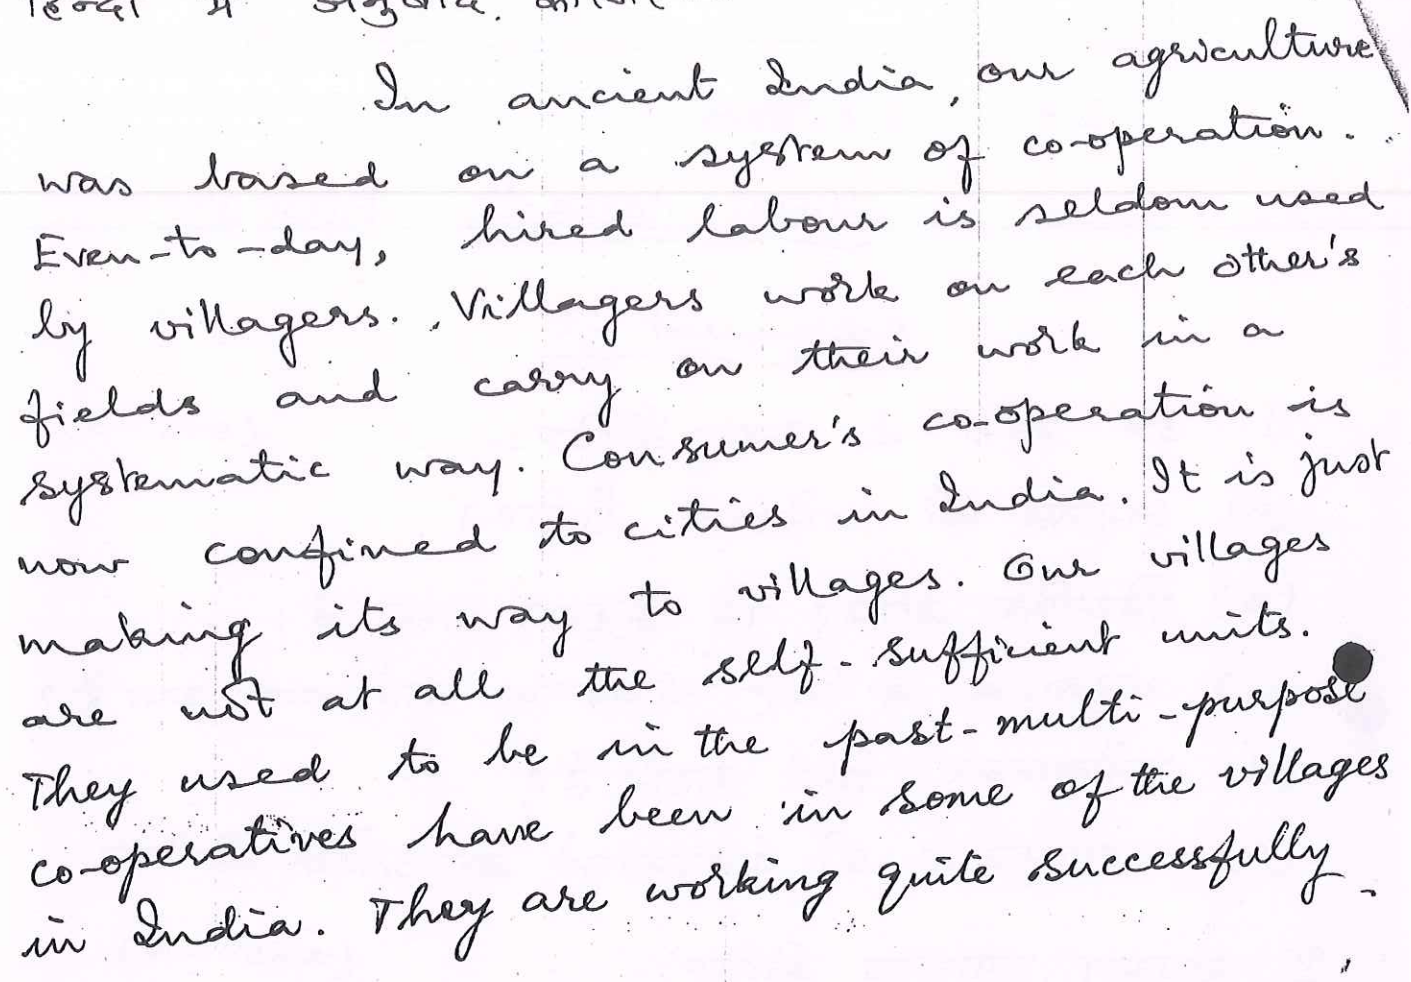 हिन्दी में अनुवाद कीजिए
In ancient India, our agriculture
was based on a system of co-operation.
Even-to-day, hired labour is seldom used
by villagers. Villagers work on each other's
fields and carry on their work in a
systematic way. Consumer's co-operation is
now confined to cities in India. It is just
making its way to villages. Our villages
are not at all the self-sufficient units.
They used to be in the past-multi-purpose
co-operatives have been in some of the villages
in India. They are working quite successfully.